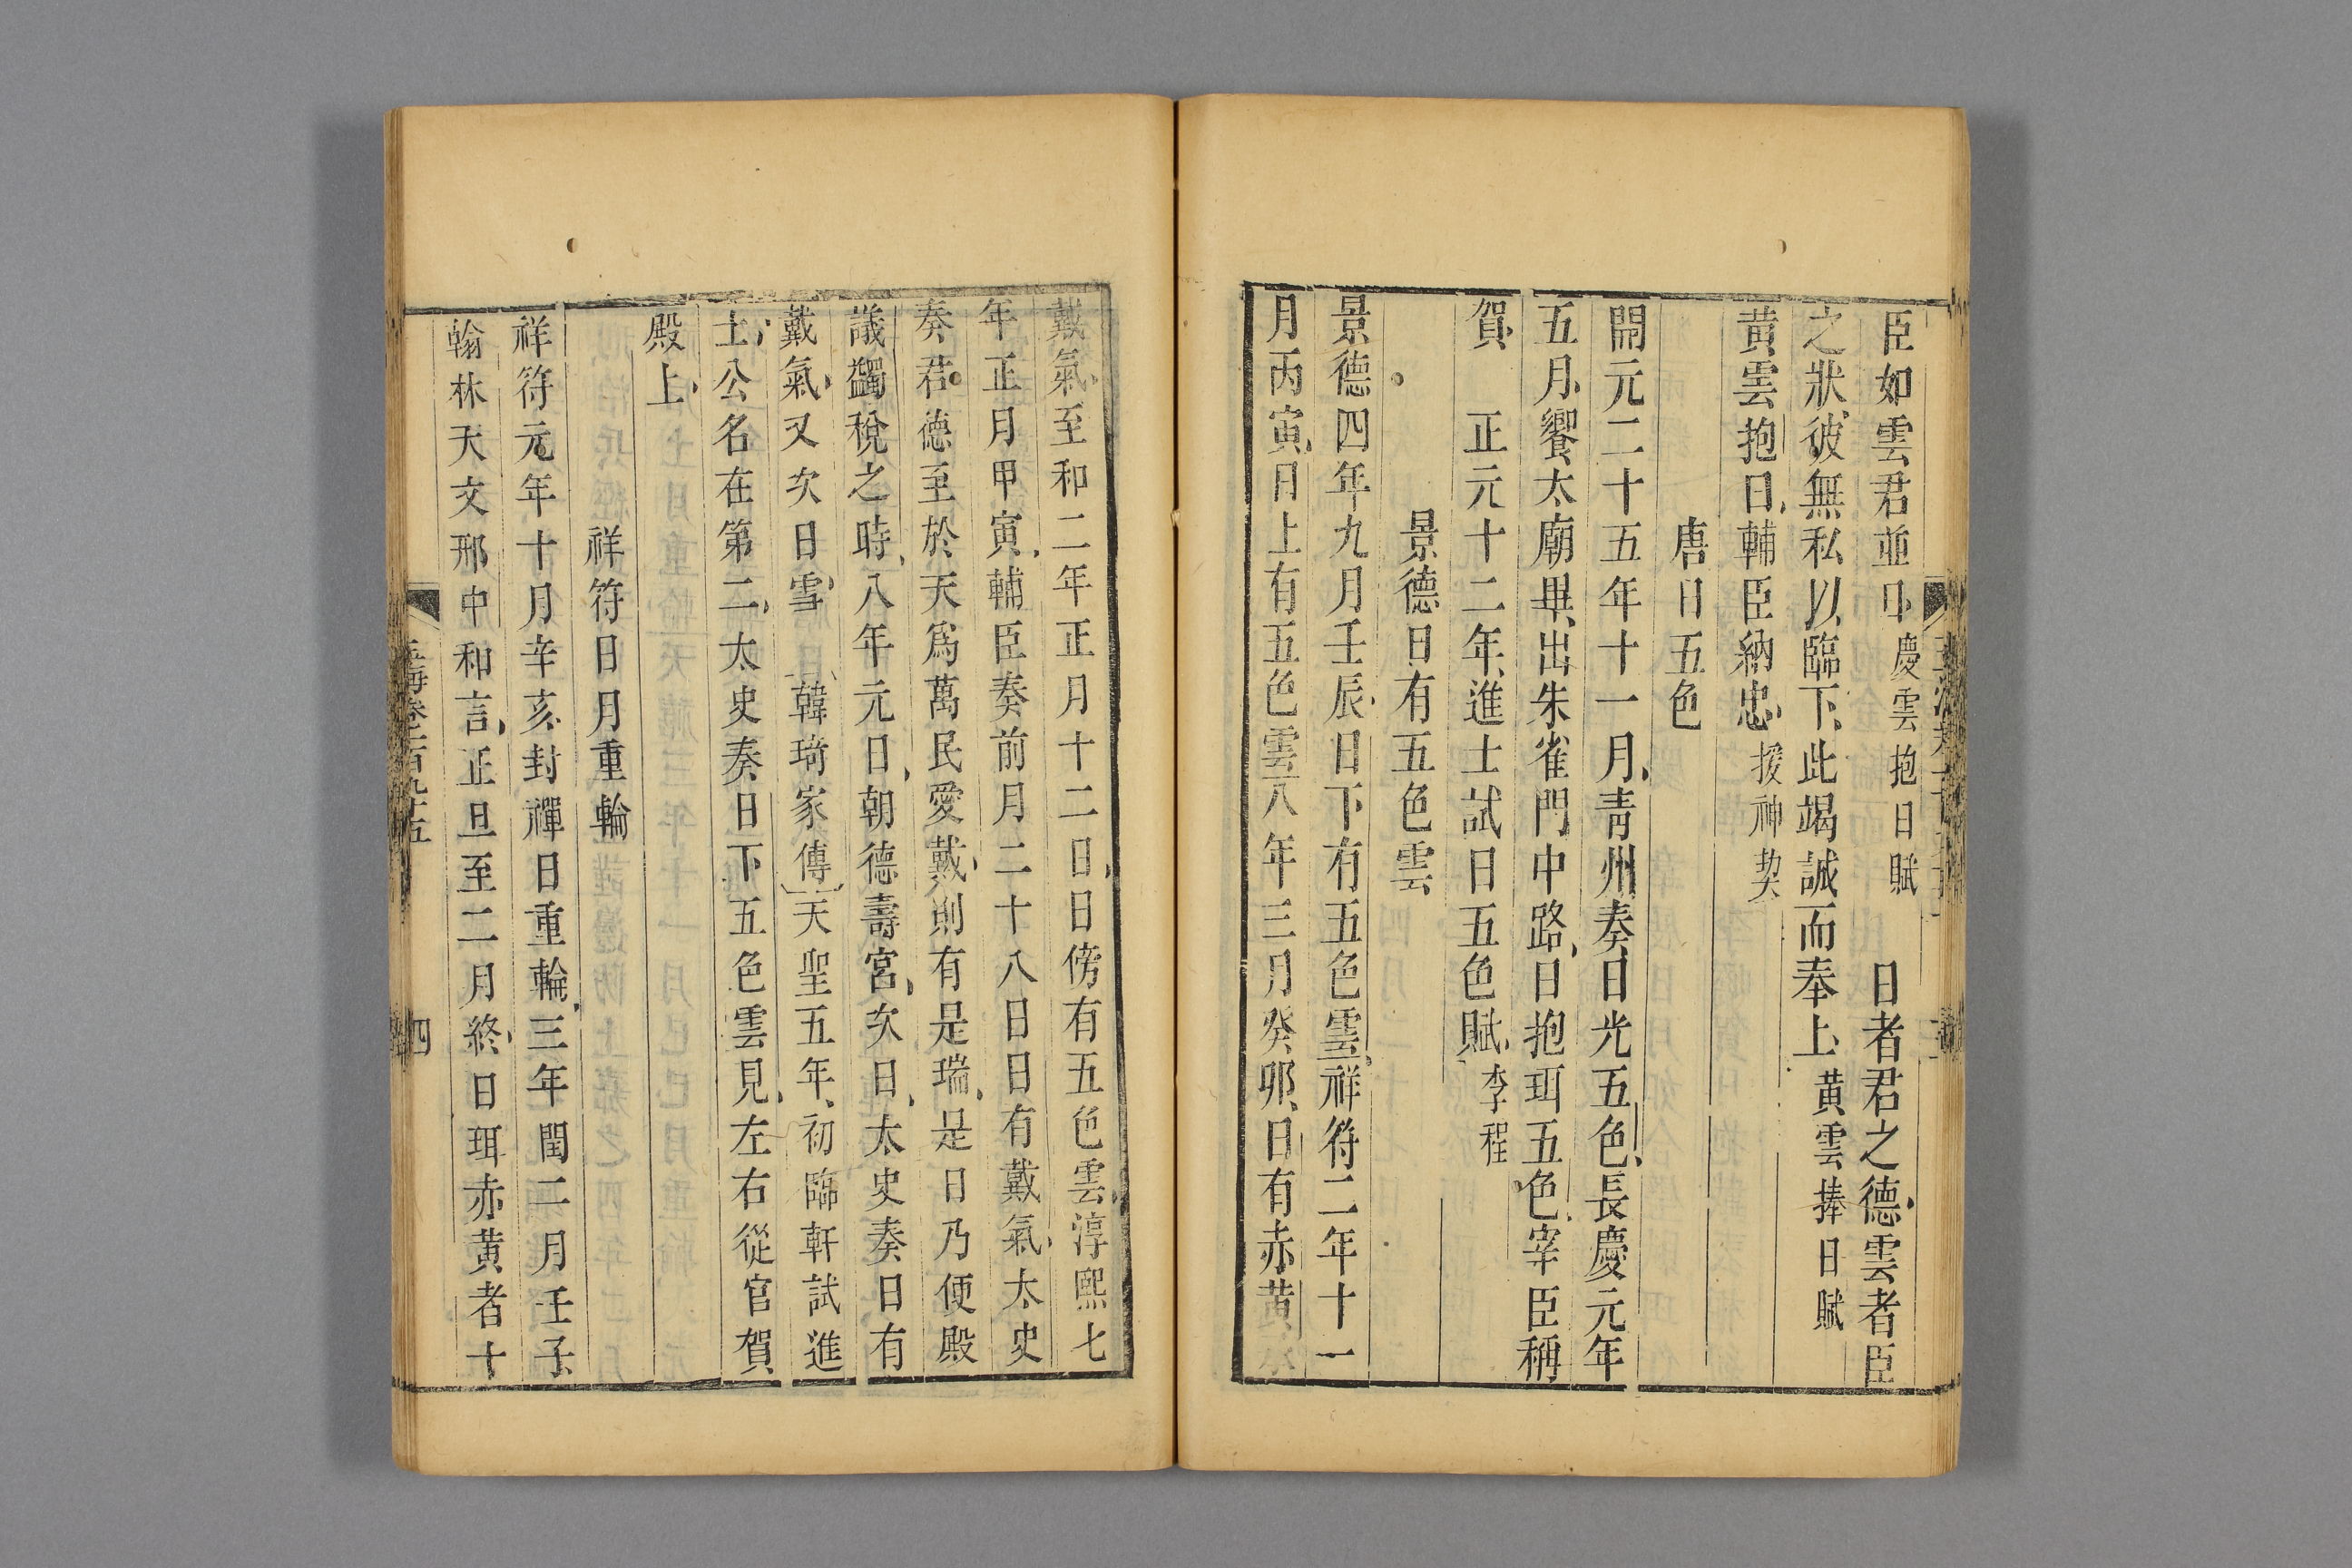 臣如雲君並日慶雲抱日賦　日者君之德雲者臣
之狀彼無私以臨下此竭誠而奉上黃雲捧日賦
黃雲抱日輔臣納忠援神契
唐日五色
開元二十五年十一月青州奏日光五色長慶元年
五月饗太廟畢出朱雀門中路日抱珥五色宰臣稱
賀　正元十二年進士試日五色賦李程
景德日有五色雲
景德四年九月壬辰日下有五色雲祥符二年十一
月丙寅日上有五色雲八年三月癸卯日有赤黃
戴氣至和二年正月十二日日傍有五色雲淳熙七
年正月甲寅輔臣奏前月二十八日日有戴氣太史
奏君德至於天爲萬民愛戴則有是瑞是日乃便殿
議蠲稅之時八年元日朝德壽宮次日太史奏日有
戴氣又次日雪韓琦家傳天聖五年初臨軒試進
士公名在第二太史奏日下五色雲見左右從官賀
殿上
祥符日月重輪
祥符元年十月辛亥封禪日重輪三年閏二月壬子
翰林天文邢中和言正旦至二月終日珥赤黃者十
玉海卷一百九十五　四